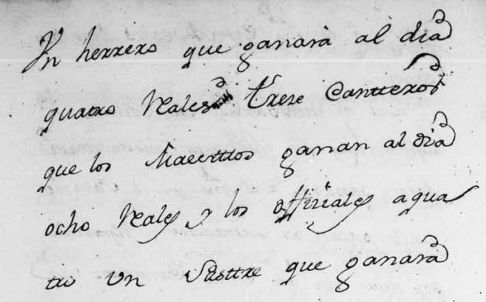 Un herrero que ganara al dia
quatro Reales trece Canteros
que los Maestros ganan al dia
ocho Reales y los offiziales a qua
tro Un Sasttre que ganara